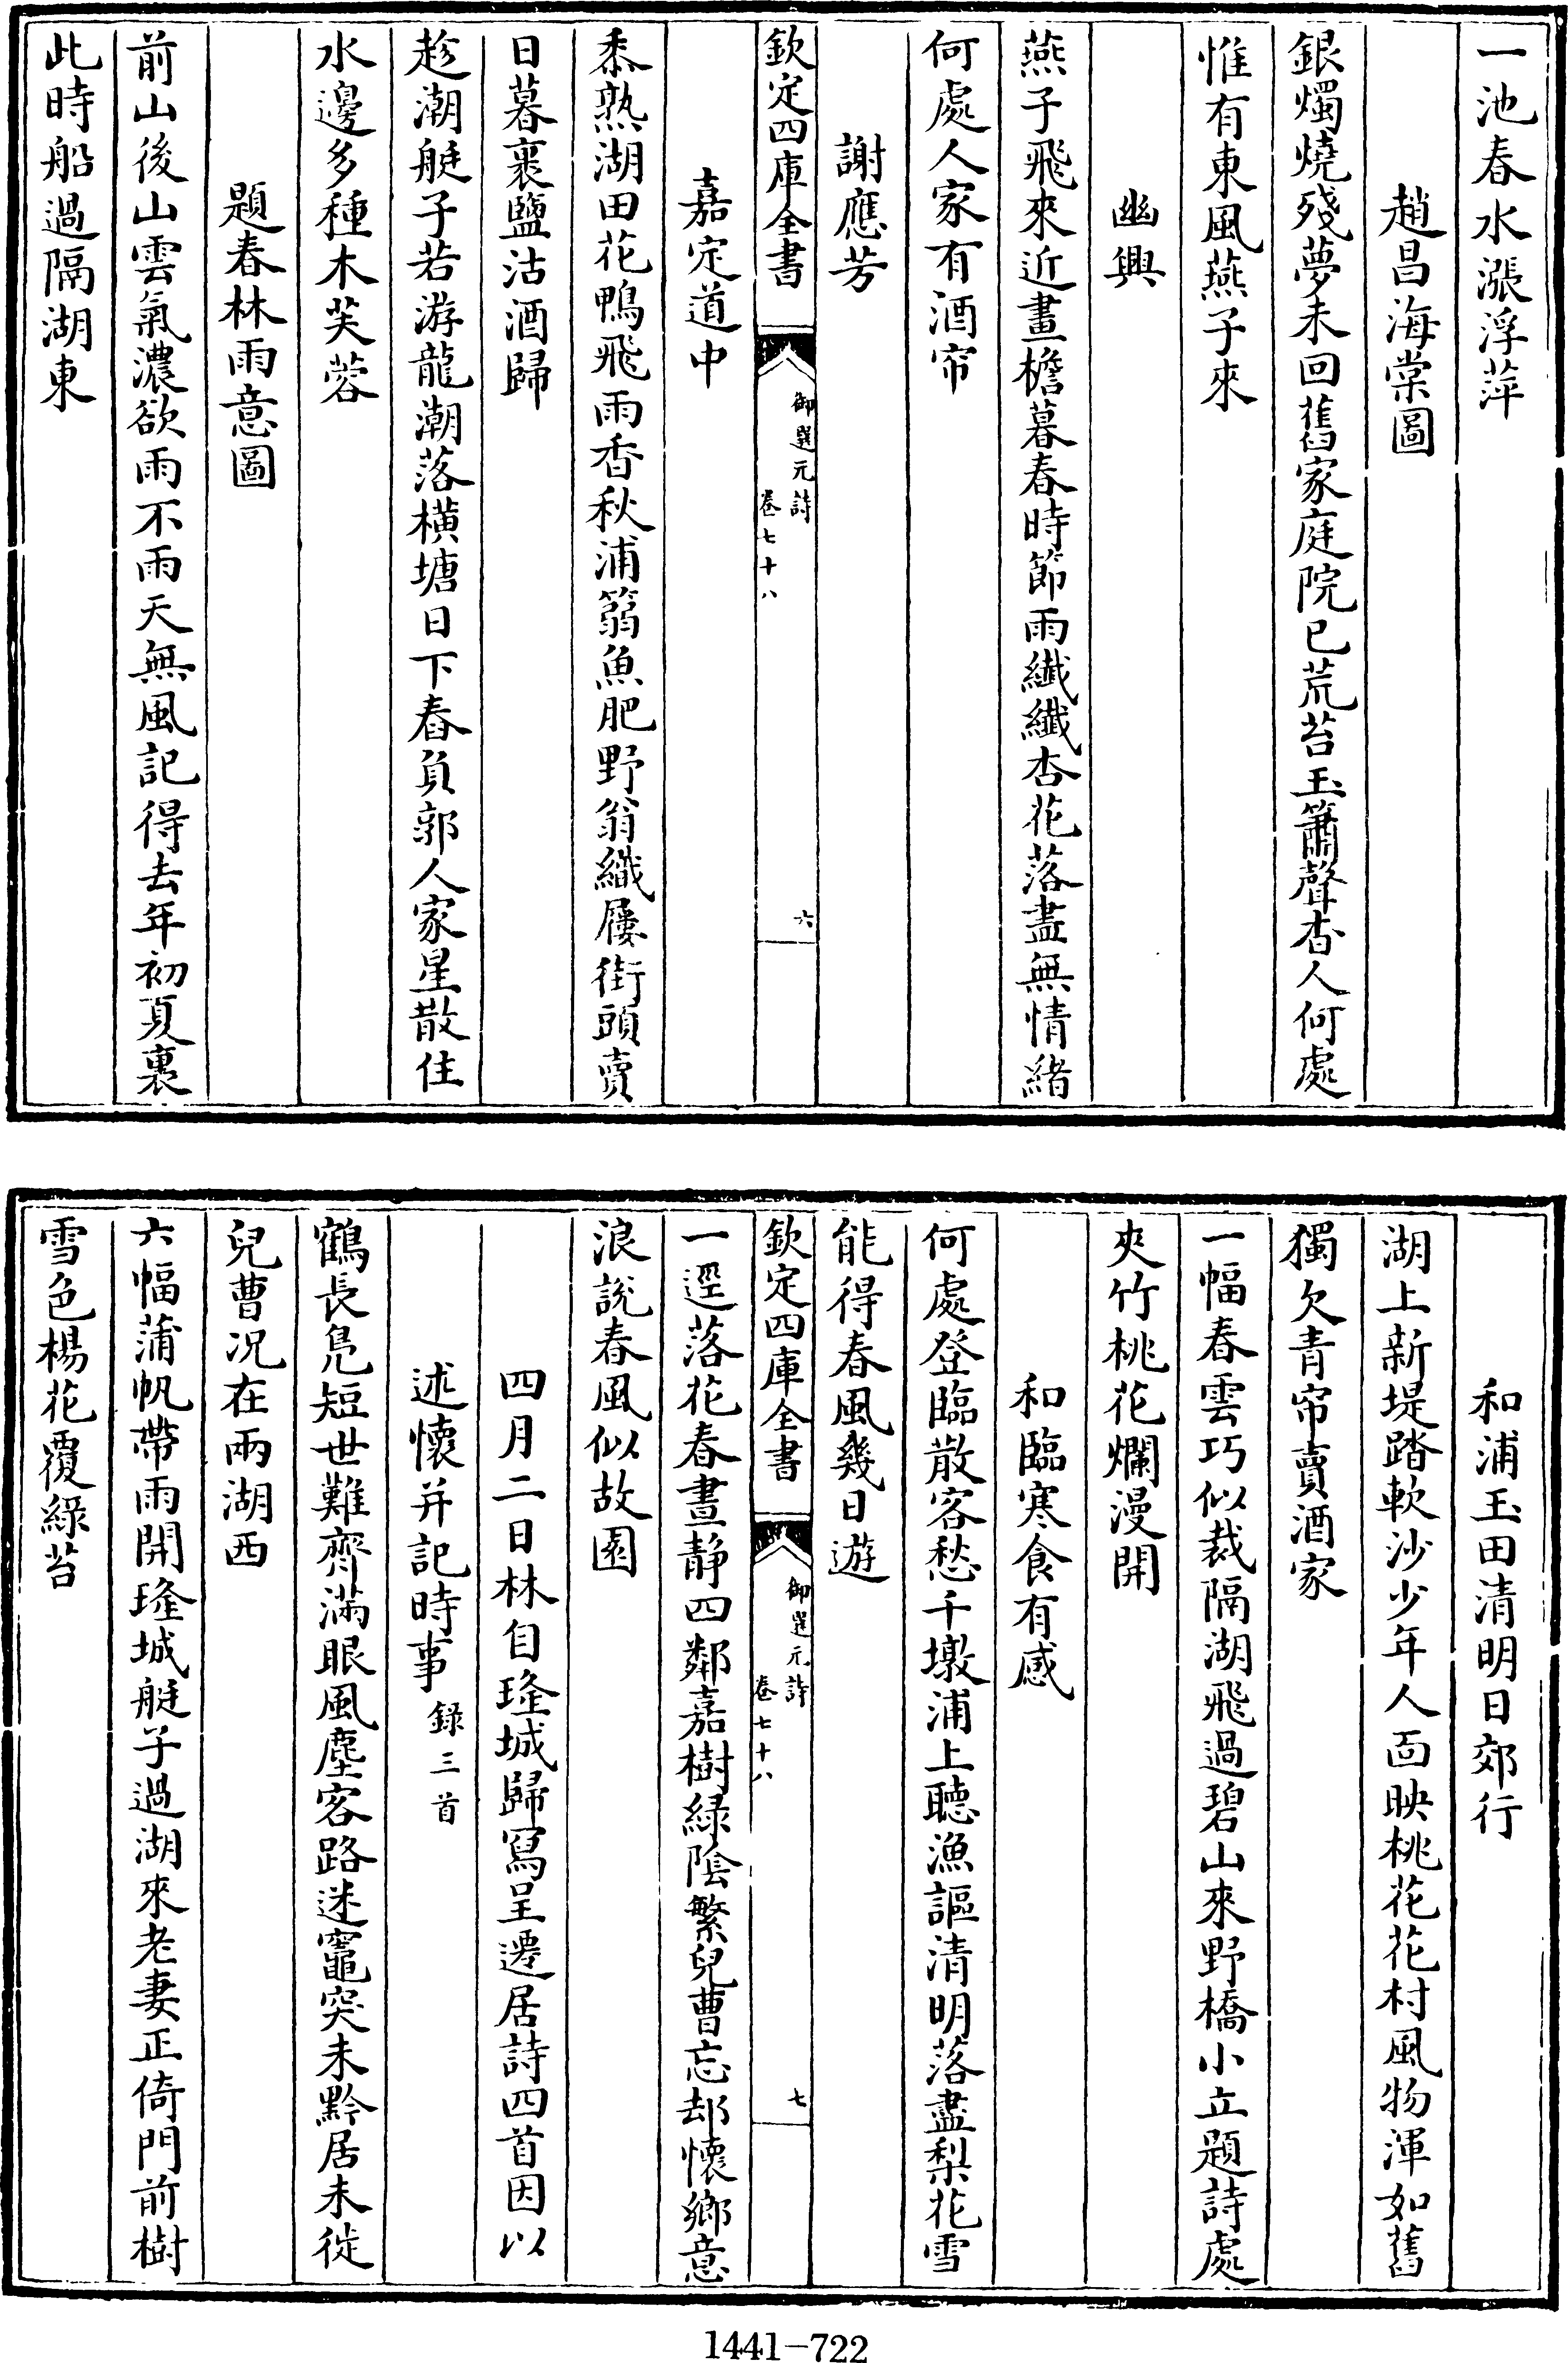 一池春水漲浮萍
趙昌海棠圖
銀燭燒殘夢未回舊家庭院已荒苔玉簫聲杳人何處
惟有東風燕子來
幽興
燕子飛來近畫檐暮春時節雨纖纖杏花落盡無情緒
何處人家有酒帘
謝應芳
欽定四庫全書
御選元詩
卷七十八
六
嘉定道中
黍熟湖田花鴨飛雨香秋浦蒻魚肥野翁織屨街頭賣
日暮裹鹽沽酒歸
趁潮艇子若游龍潮落橫塘日下舂負郭人家星散住
水邊多種木芙蓉
題春林雨意圖
前山後山雲氣濃欲雨不雨天無風記得去年初夏裏
此時船過隔湖東
和浦玉田清明日郊行
湖上新堤踏軟沙少年人面映桃花花村風物渾如舊
獨欠青帘賣酒家
一幅春雲巧似裁隔湖飛過碧山來野橋小立題詩處
夾竹桃花爛漫開
和臨寒食有感
何處登臨散客愁千墩浦上聽漁謳清明落盡梨花雪
能得春風幾日遊
欽定四庫全書
御選元詩
卷七十八
七
一逕落花春晝靜四鄰嘉樹綠陰繁兒曹忘却懷鄉意
浪說春風似故園
四月二日林自琒城歸寫呈遷居詩四首因以
述懷并記時事錄三首
鶴長鳧短世難齊滿眼風塵客路迷竈突未黔居未徙
兒曹况在兩湖西
六幅蒲帆帶雨開琒城艇子過湖來老妻正倚門前樹
雪色楊花覆綠苔
1441-722